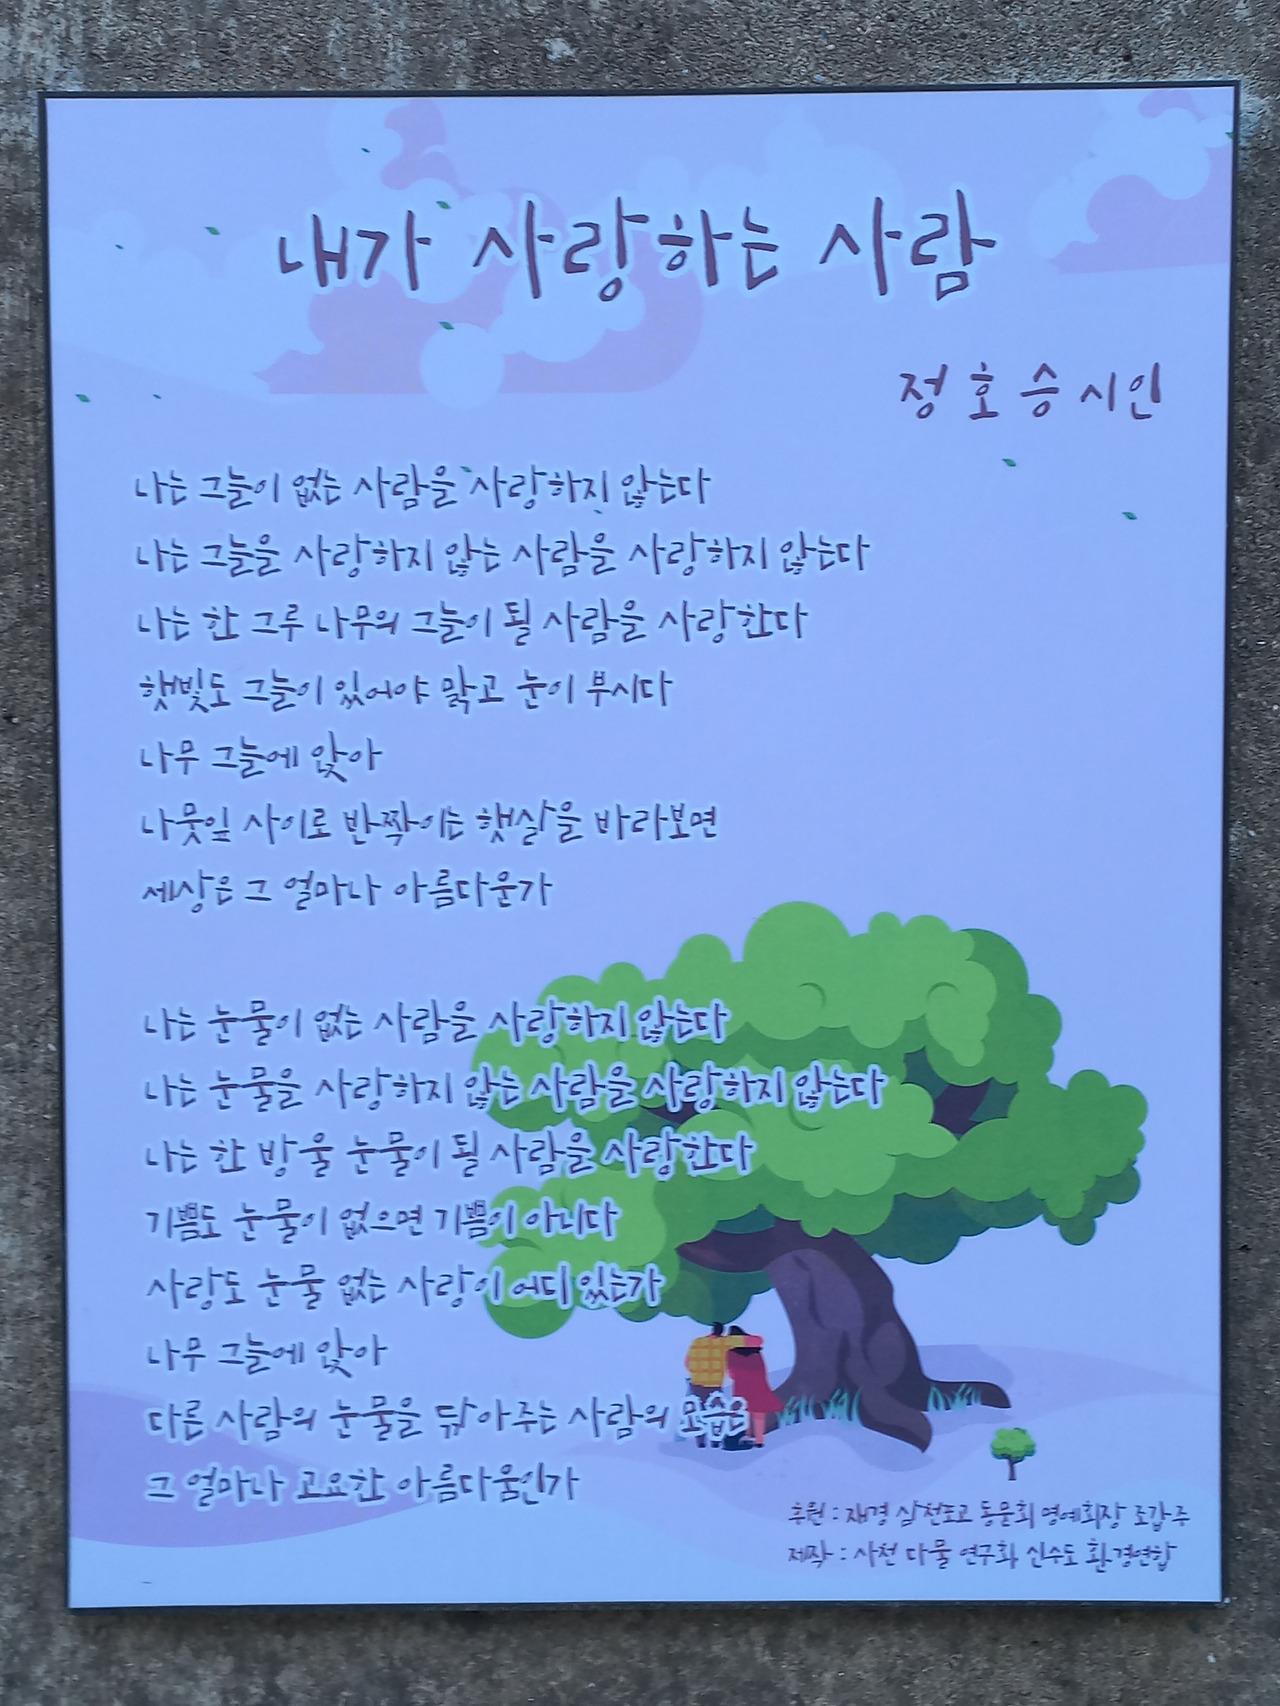 내가 사랑하는 사람
정호승 시인
나는 그늘이 없는 사람을 사랑하지 않는다
나는 그늘을 사랑하지 않는 사람을 사랑하지 않는다
나는 한 그루 나무의 그늘이 될 사람을 사랑한다
햇빛도 그늘이 있어야 맑고 눈이 부시다
나무 그늘에 앉아
나뭇잎 사이로 반짝이는 햇살을 바라보면
세상은 그 얼마나 아름다운가
나는 눈물이 없는 사람을 사랑하지 않는다
나는 눈물을 사랑하지 않는 사람을 사랑하지 않는다
나는 한 방울 눈물이 될 사람을 사랑한다
기쁨도 눈물이 없으면 기쁨이 아니다
사랑도 눈물 없는 사랑이 어디 있는가
나무 그늘에 앉아
다른 사람의 눈물을 닦아주는 사람의 모습은
그 얼마나 고요한 아름다움인가
후원 : 재경 삼천포고 동문회 명예회장 조갑주
제작 : 사천 다물 연구회 신수도 환경연합